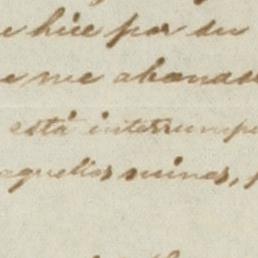 e hice por su
e me abando
está interrumpi
aquellos ruinas,